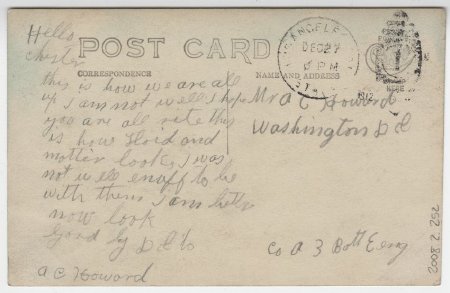 Hello
POST CARD
CORRESPONDENCE
NAME AND ADDRESS
this is how we are all
I am not well I hope
you are all rite this
is how Floid and
mother looks I was
not well enuff to be
with them I am better
now look
Good by
a C Howard
Mr A C Howard
Washington D C
Co A 3 Batt Eeng
LOS ANGELES
DEC 27
PM
2008.2.252